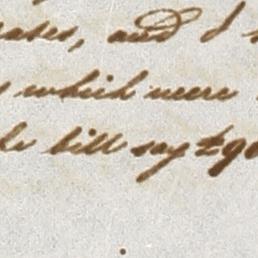 ases, and I
which were
bill say